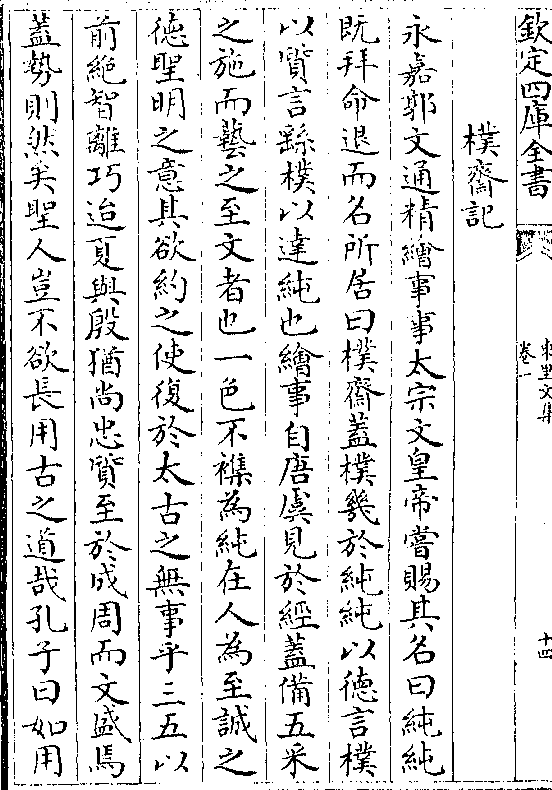 欽定四庫全書
東里文集
卷一
十四
樸齋記
永嘉郭文通精繪事事太宗文皇帝嘗賜其名曰純純
既拜命退而名所居曰樸齋蓋樸幾於純純以德言樸
以質言繇樸以達純也繪事自唐虞見於經蓋備五采
之施而藝之至文者也一色不襍為純在人為至誠之
德聖明之意其欲約之使復於太古之無事乎三五以
前絶智離巧迨夏與殷猶尚忠質至於成周而文盛焉
蓋勢則然矣聖人豈不欲長用古之道哉孔子曰如用